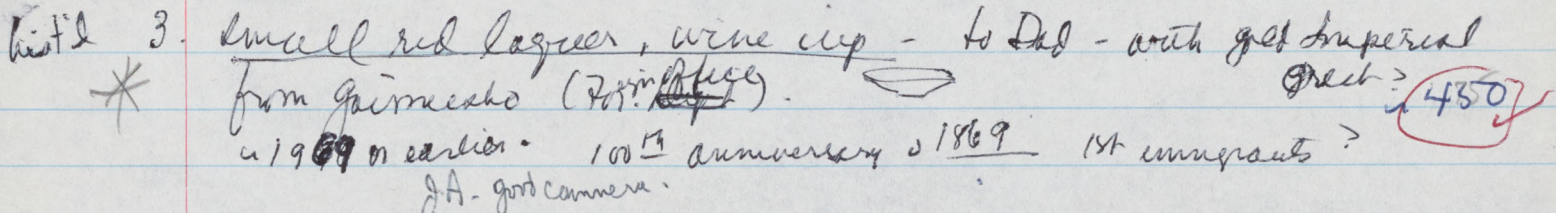 hist'l 3. small red laquer, wine cup - to Dad - with gold Imperial
Crest?
from Gaimusho (Foreign Office). 450
in 1969 or earlier. 100th anniversary of 1869 1st immigrants?
JA - good